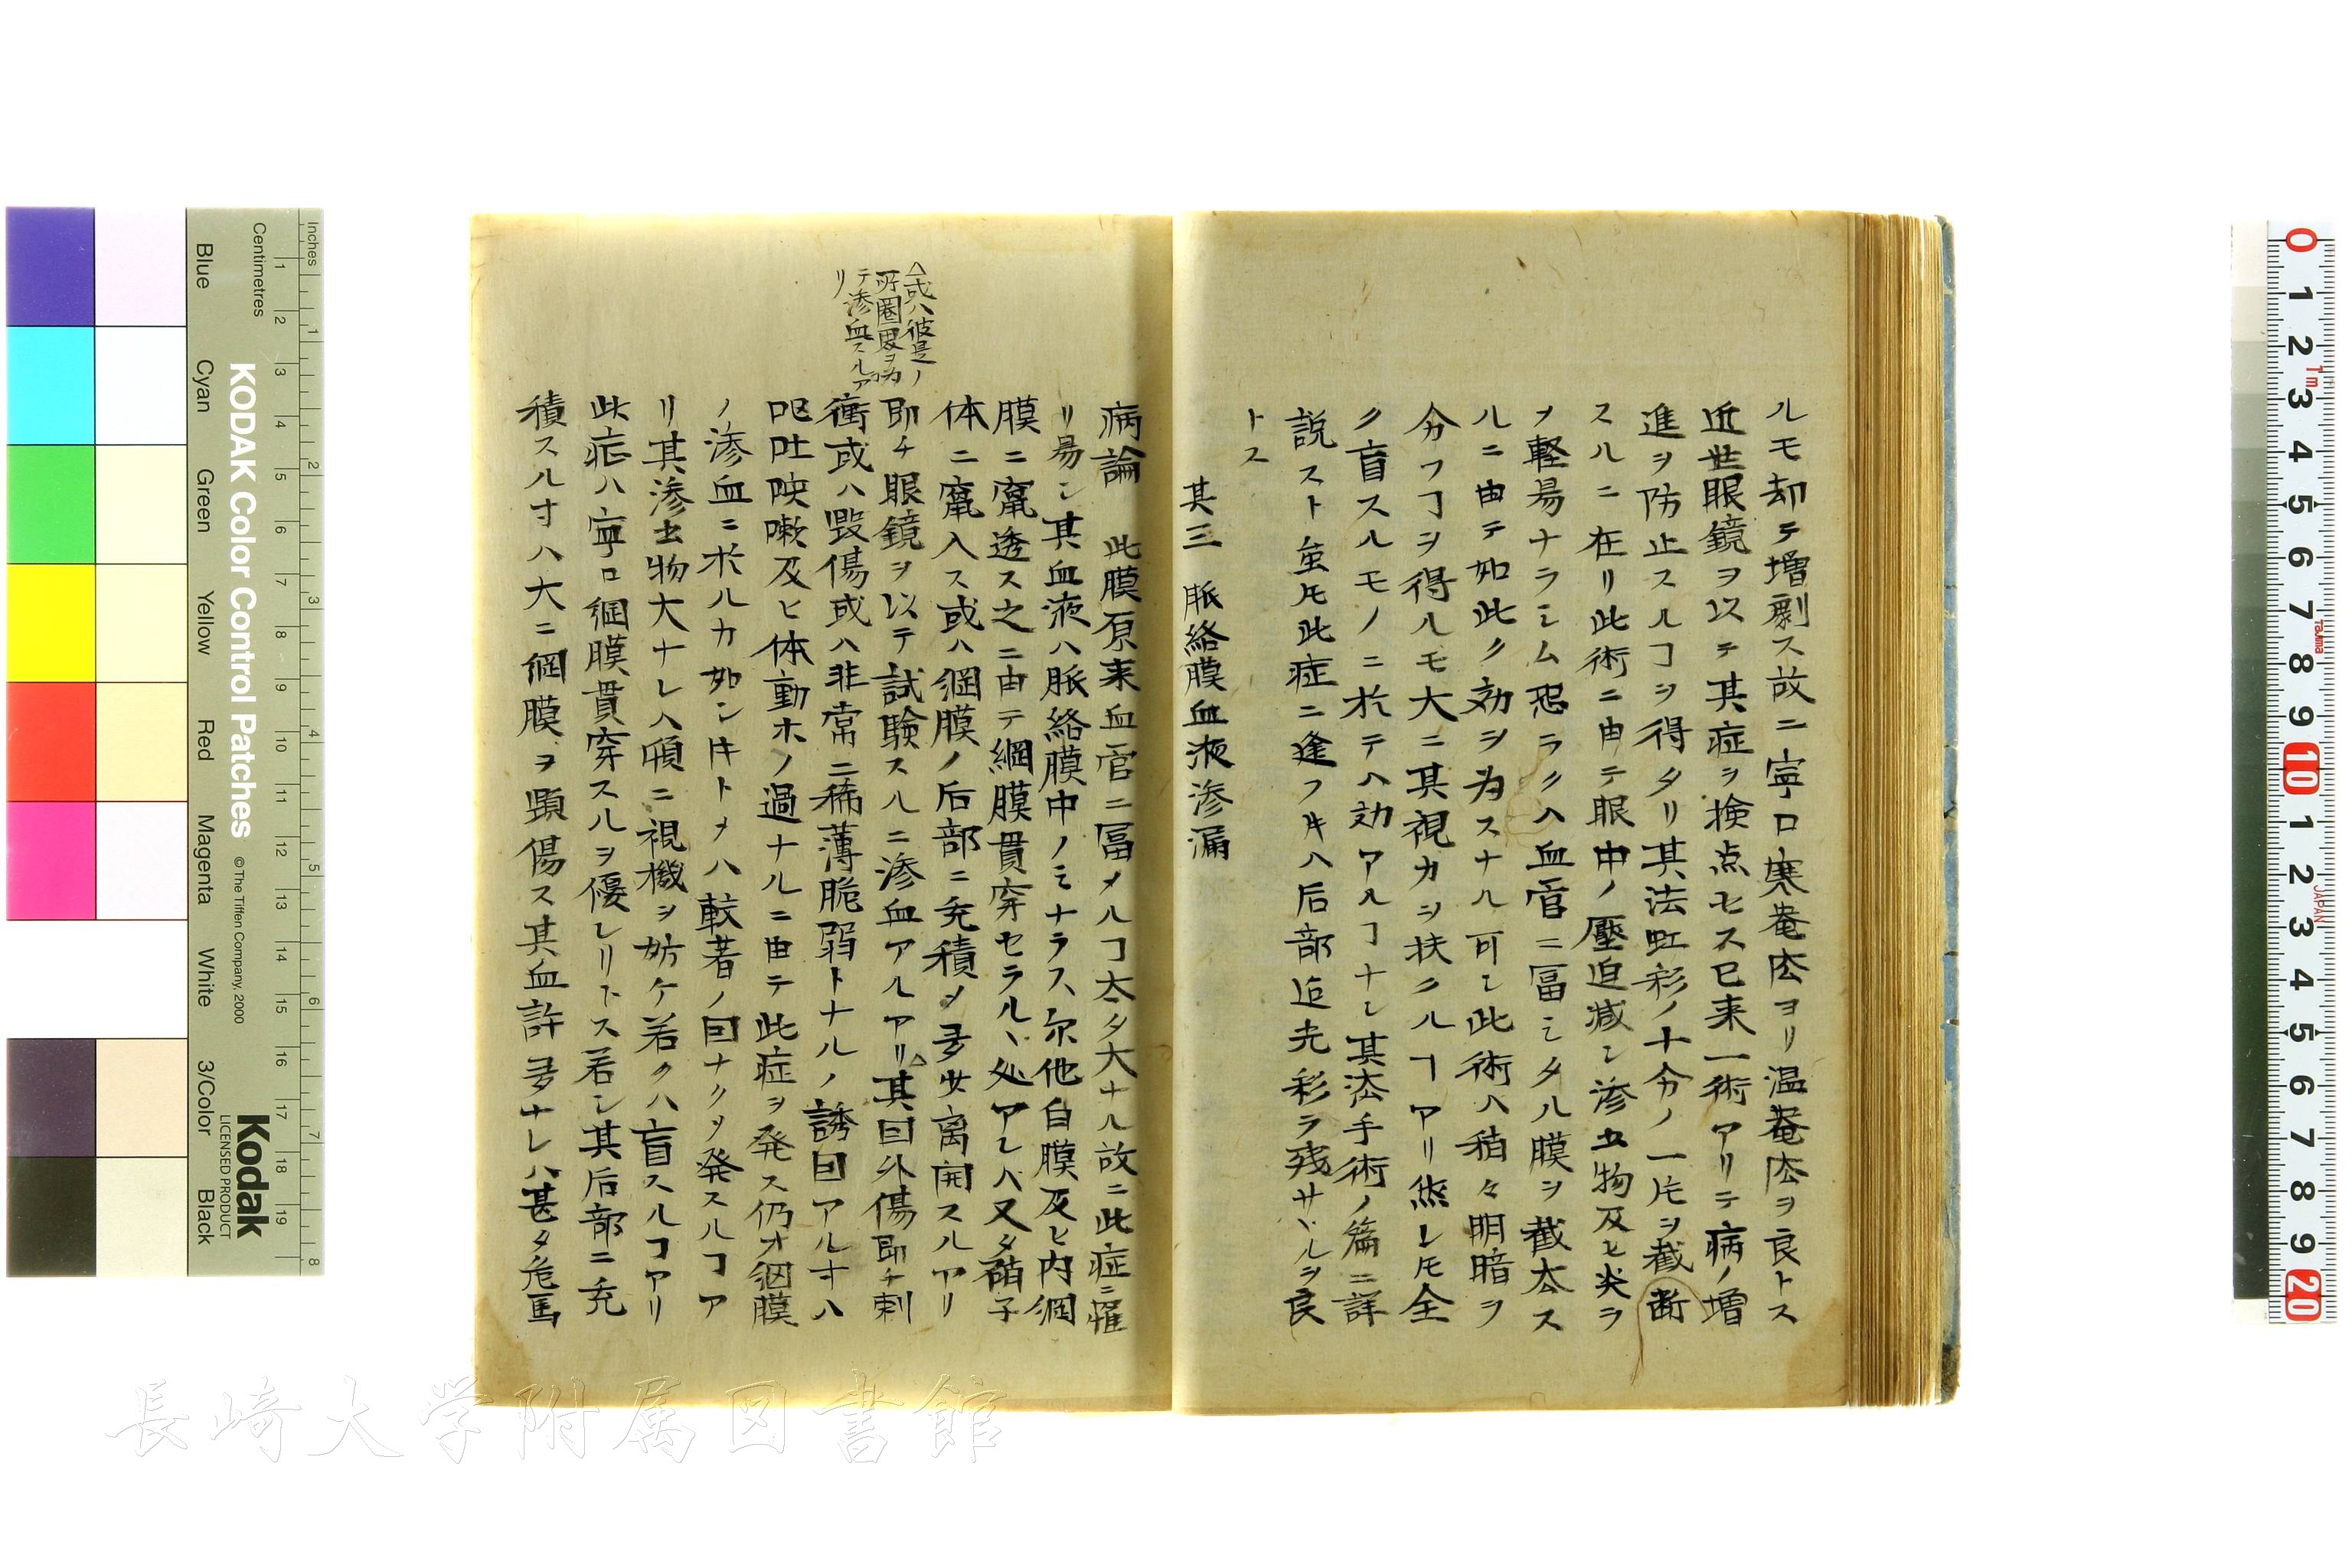 ルモ却テ増劇ス故ニ寧ロ寒菴法ヨリ温菴法ヲ良トス
近世眼鏡ヲ以テ其症ヲ検点セス已来一術アリテ病ノ増
進ヲ防止スルヿヲ得タリ其法虹彩ノ十分ノ一片ヲ截断
スルニ在リ此術ニ由テ眼中ノ壓迫减シ滲出物及ヒ炎ヲ
ヲ軽易ナラシム恐ラクハ血管ニ冨ミタル膜ヲ截太ス
ルニ由テ如此ク効ヲ为スナル可シ此術ハ稍々明暗ヲ
分フヿヲ得ルモ大ニ其視力ヲ扶クルヿアリ然レ𪜈全
ク盲スルモノニ於テハ効アルヿナシ其法手術ノ篇ニ詳
説スト虽𪜈此症ニ逢フキハ后部迠光彩ラ残サヾルヲ良
トス
其三 脈絡膜血液滲漏
病論 此膜原来血管ニ冨メルヿ太タ大ナル故ニ此症ニ罹
リ易シ其血液ハ脈絡膜中ノミナラス尓他白膜及ヒ内網
膜ニ竄透ス之ニ由テ網膜貫穿セラルヽ処アレハ又タ硝子
体ニ竄入ス或ハ網膜ノ后部ニ充積メ多少离開スルアリ
即チ眼鏡ヲ以テ試験スルニ滲血アルアリ△其因外傷即チ刺
衝或ハ毀傷或ハ非常ニ稀薄脆弱トナルノ誘因アルオハ
呕吐咳嗽及ヒ体動ホノ過ナルニ由テ此症ヲ発ス仍オ網膜
ノ滲血ニ於ルカ如シ𪜈トメハ較著ノ因ナクメ発スルヿア
リ其滲出物大ナレハ頓ニ視機ヲ妨ケ若クハ盲スルヿアリ
此症ハ寧ロ網膜貫穿スルヲ優レリトス若シ其后部ニ充
積スルオハ大ニ網膜ヲ顕傷ス其血許多ナレハ甚タ危焉
△或ハ彼是ノ
所圏畏ヲ为
テ滲血スルア
リ
KODAK Color Control Patches
© The Tiffen Company, 2000
Kodak
LICENSED PRODUCT
Inches
Centimetres
Blue
Cyan
Green
Yellow
Red
Magenta
White
3/Color
Black
1 2 3 4 5 6 7 8 9 10 11 12 13 14 15 16 17 18 19
1 2 3 4 5 6 7 8
0 1 2 3 4 5 6 7 8 9 10 1 2 3 4 5 6 7 8 9 20
1m
Tajima
JAPAN
長崎大学附属図書館